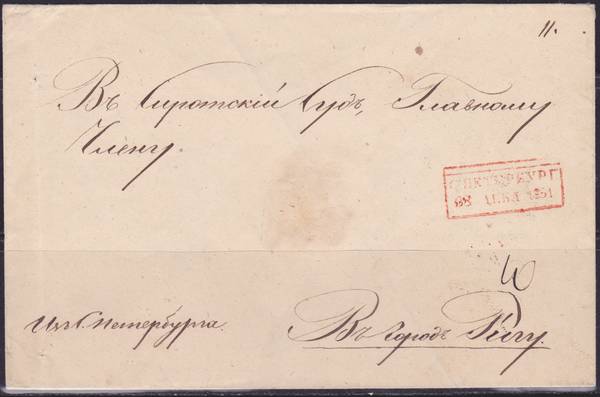 11.
Въ Сиротскій Судъ, Главному
Члену.
С.ПЕТЕРБУРГ
1851
Изъ С. Петербурга.
Въ городъ Ригу.